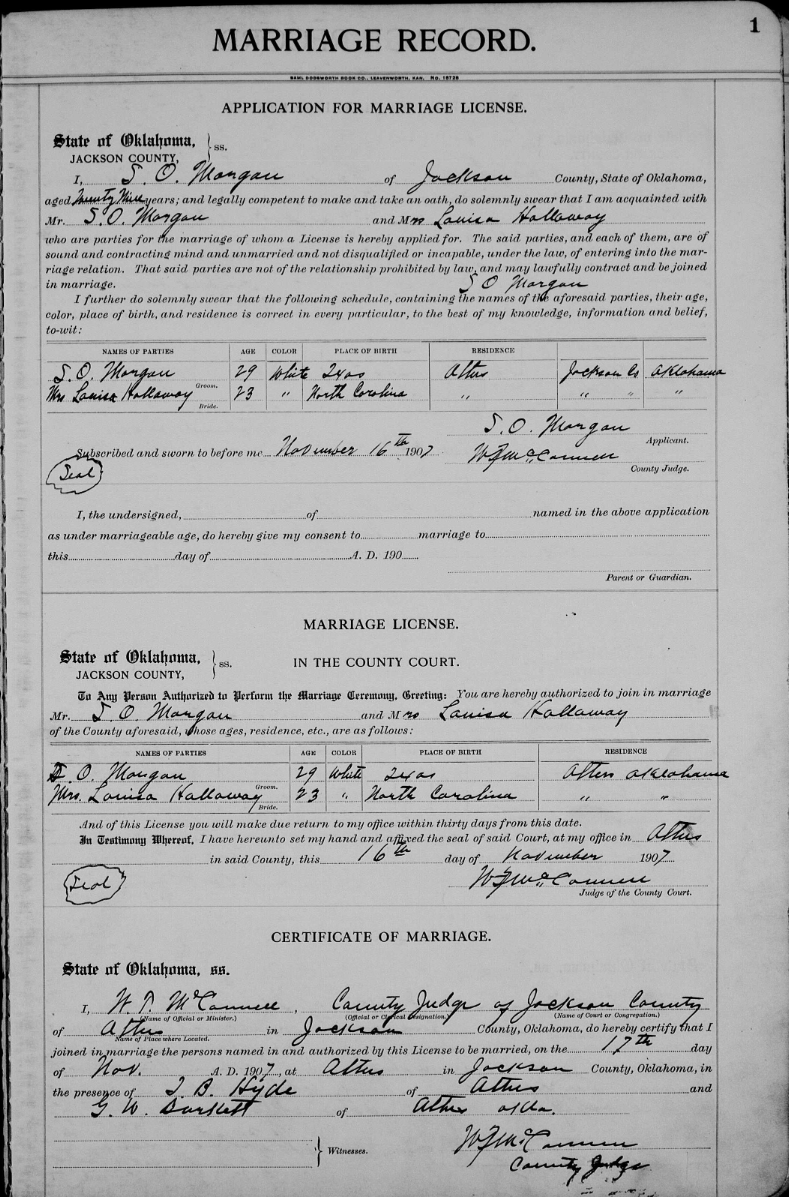 1
MARRIAGE RECORD.
SAML DODSWORTH BOOK CO., LEAVENWORTH, KAN. NO. 15728
APPLICATION FOR MARRIAGE LICENSE.
State of Oklahoma, } ss.
JACKSON COUNTY,
I, S. O. Morgan of Jackson County, State of Oklahoma,
aged Twenty Nine years; and legally competent to make and take an oath, do solemnly swear that I am acquainted with
Mr. S. O. Morgan and Mrs Louisa Hallaway
who are parties for the marriage of whom a License is hereby applied for. The said parties, and each of them, are of
sound and contracting mind and unmarried and not disqualified or incapable, under the law, of entering into the mar-
riage relation. That said parties are not of the relationship prohibited by law, and may lawfully contract and be joined
in marriage. S O Morgan
I further do solemnly swear that the following schedule, containing the names of the aforesaid parties, their age,
color, place of birth, and residence is correct in every particular, to the best of my knowledge, information and belief,
to-wit:
NAMES OF PARTIES AGE COLOR PLACE OF BIRTH RESIDENCE
S. O. Morgan Groom. 29 White Texas Altus Jackson Co Oklahoma
Mrs. Louisa Hallaway Bride. 23 " North Carolina " " " "
S. O. Morgan
Applicant.
Subscribed and sworn to before me November 16th 1907 W F McConnell
(Seal) County Judge.
I, the undersigned, of named in the above application
as under marriageable age, do hereby give my consent to marriage to
this day of A. D. 190
Parent or Guardian.
MARRIAGE LICENSE.
State of Oklahoma, } ss. IN THE COUNTY COURT.
JACKSON COUNTY,
To Any Person Authorized to Perform the Marriage Ceremony, Greeting: You are hereby authorized to join in marriage
Mr. S. O. Morgan and Mrs Louisa Hallaway
of the County aforesaid, whose ages, residence, etc., are as follows:
NAMES OF PARTIES AGE COLOR PLACE OF BIRTH RESIDENCE
S. O. Morgan Groom. 29 White Texas Altus Oklahoma
Mrs. Louisa Hallaway Bride. 23 " North Carolina " "
And of this License you will make due return to my office within thirty days from this date.
In Testimony Whereof, I have hereunto set my hand and affixed the seal of said Court, at my office in Altus
in said County, this 16th day of November 1907
W F McConnell
(Seal) Judge of the County Court.
CERTIFICATE OF MARRIAGE.
State of Oklahoma, ss.
I, W. F. McConnell, County Judge of Jackson County
(Name of Official or Minister.) (Official or Clerical designation.) (Name of Court or Congregation.)
of Altus in Jackson County, Oklahoma, do hereby certify that I
Name of Place where Located.
joined in marriage the persons named in and authorized by this License to be married, on the 17th day
of Nov. A. D. 1907, at Altus in Jackson County, Oklahoma, in
the presence of T. B. Hyde of Altus and
G. W. Bartlett of Altus Okla.
} Witnesses. W F McConnell
County Judge